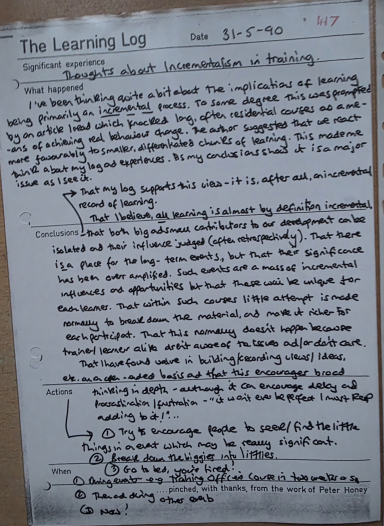 417
The Learning Log
Date 31-5-90
Significant experience
Thoughts about Incrementalism in training.
What happened
I've been thinking quite a bit about the implications of learning
being primarily an incremental process. To some degree this was prompted
by an article I read which knocked long, often residential courses as a me-
ans of achieving real behaviour change. The author suggested that we react
more favourably to smaller, differentiated chunks of learning. This made me
think about my log and experiences. As my conclusions show it is a major
issue as I see it.
That my log supports this view - it is, after all, an incremental
record of learning.
That I believe, all learning is almost by definition incremental
Conclusions That both big and small contributors to our development can be
isolated and their influence judged (often retrospectively). That there
is a place for the long-term events, but that their significance
has been over amplified. Such events are a mass of incremental
influences and opportunities but that these will be unique for
each learner. That within such courses little attempt is made
normally to break down the material, and make it richer for
each participant. That this normally doesn't happen because
trainer/learner alike aren't aware of the issues and/or don't care.
That I have found value in building/recording views/ideas,
etc. on an open-ended basis and that this encourages broad
Actions
thinking in depth - although it can encourage delay and
procrastination/frustration - "it won't ever be perfect I must keep
adding to it!"...
① Try to encourage people to see/find the little
things in an event which may be really significant.
② Break down the biggies into littles.
③ Go to bed, you're tired!
When
① During event - e.g. Training Officer Course in two weeks
② Then and during other events
③ Now!
....pinched, with thanks, from the work of Peter Honey